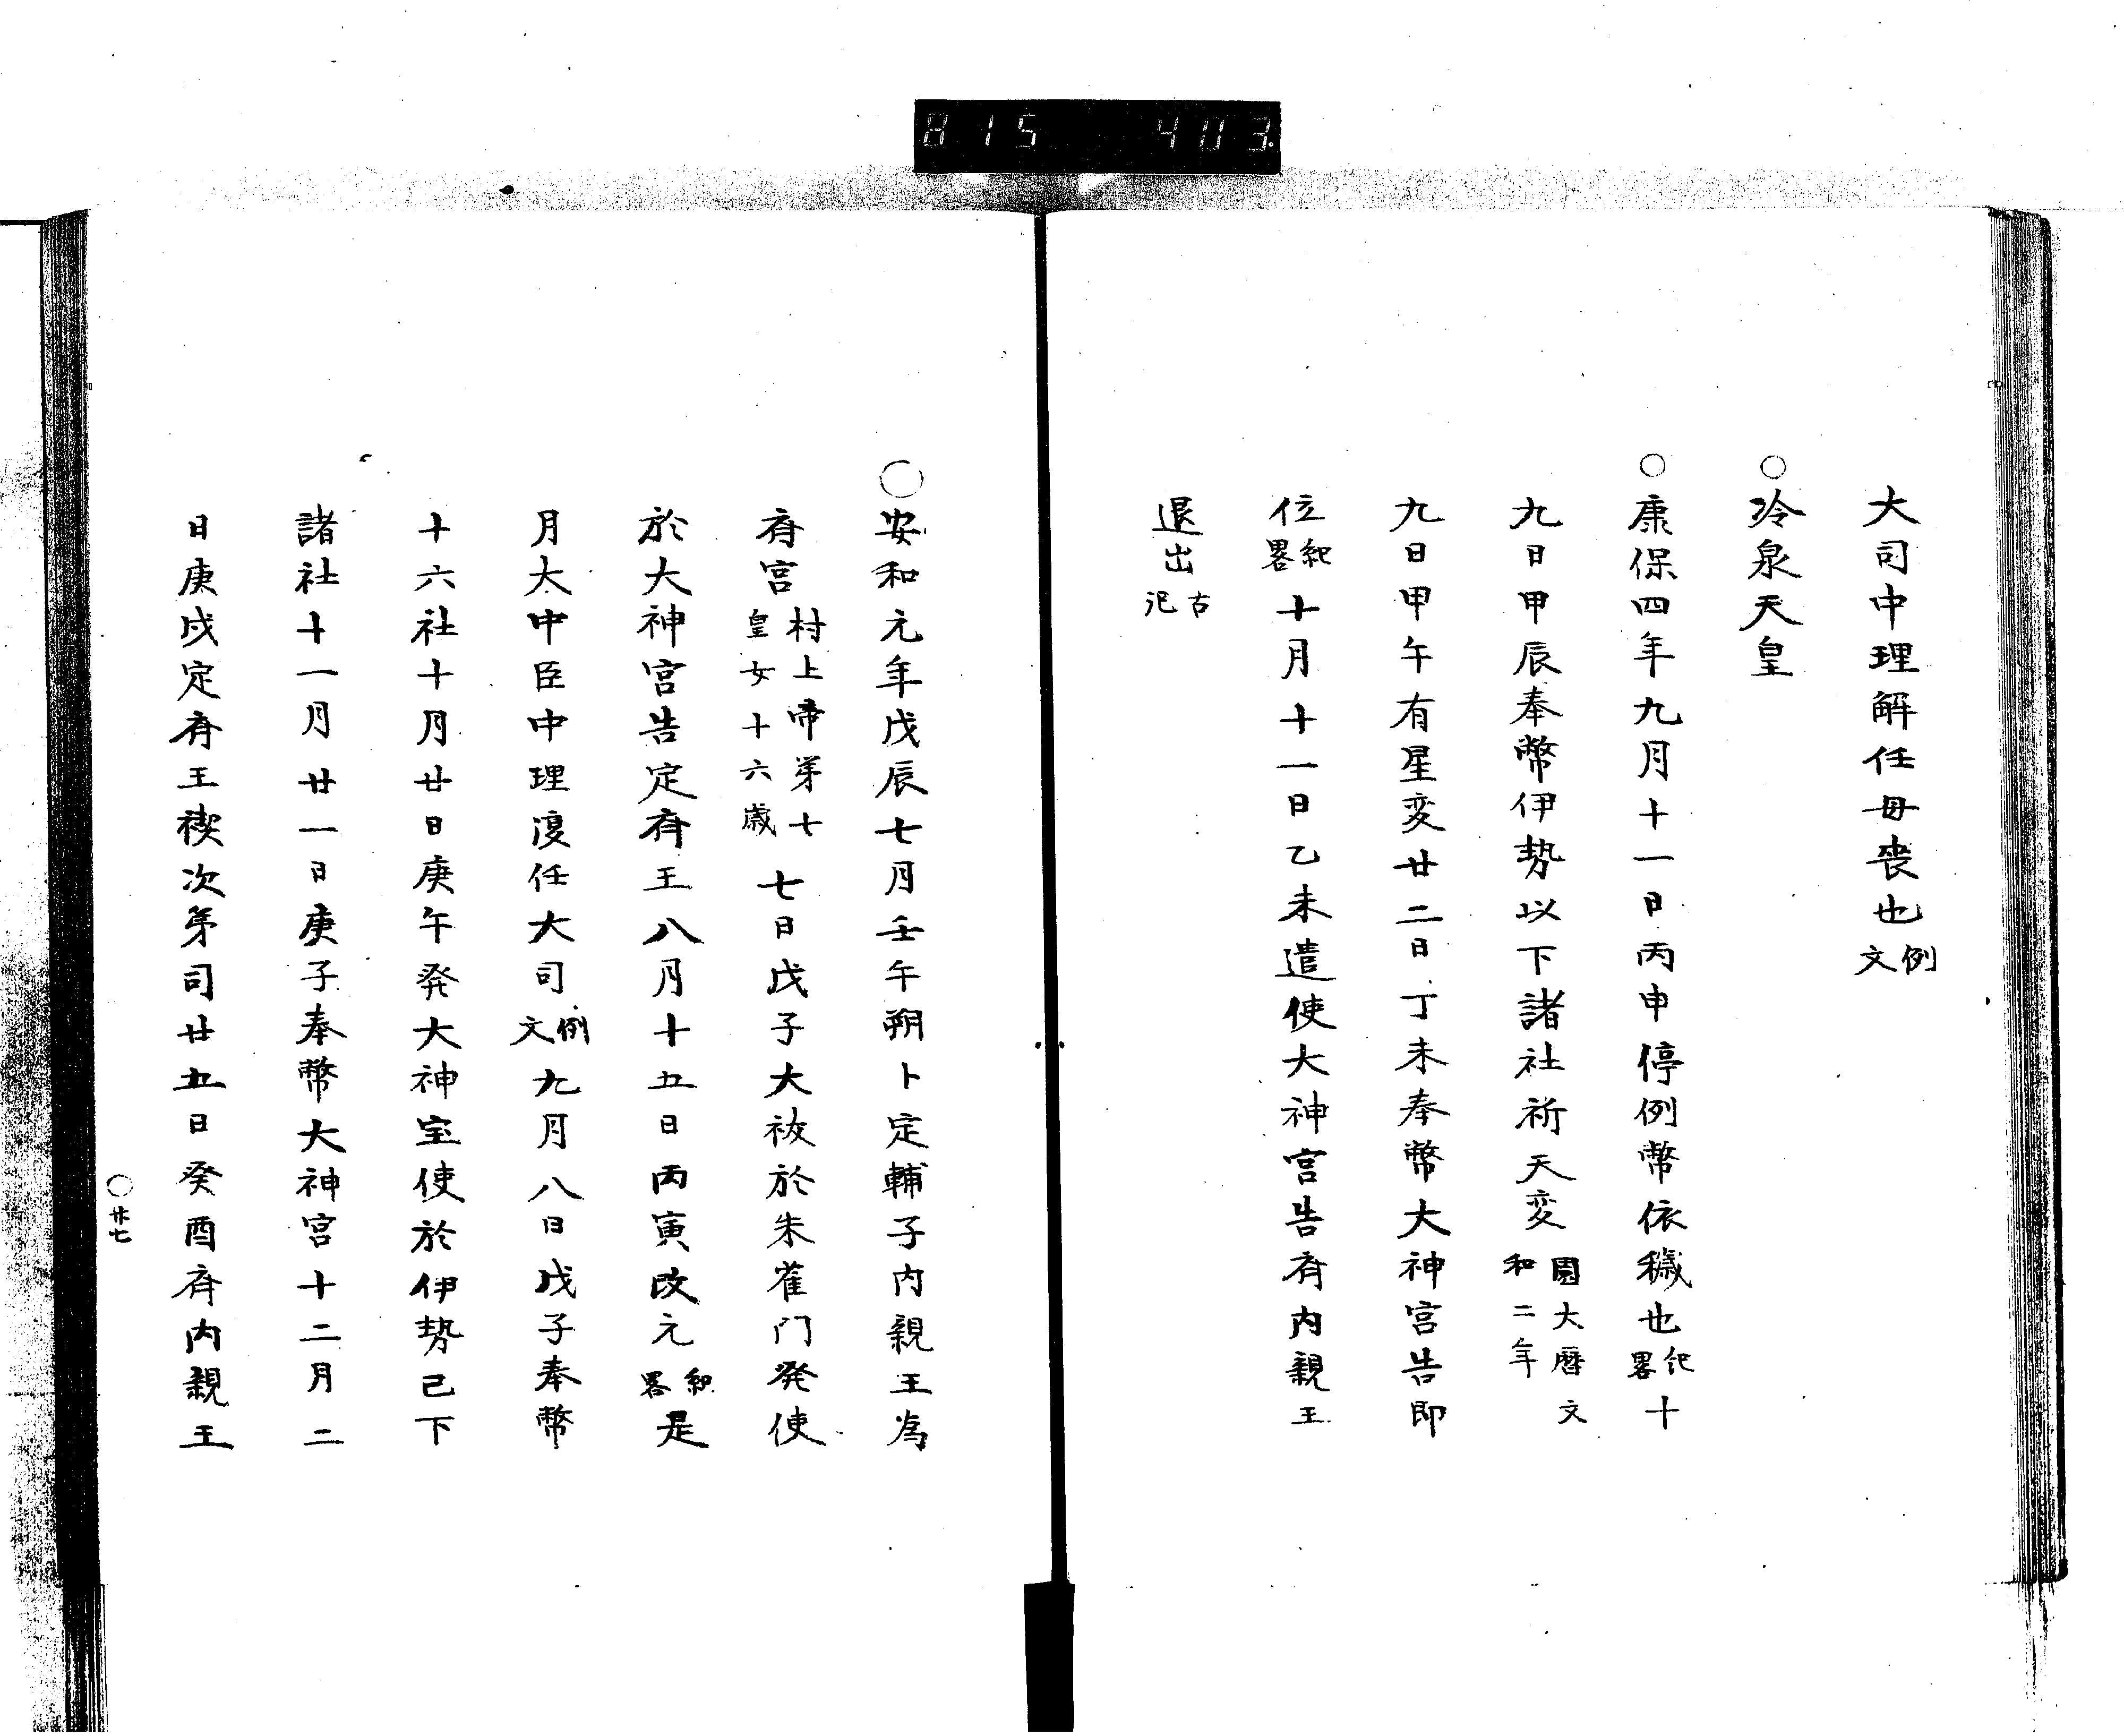 815 403
大司中理解任母喪也例文
○冷泉天皇
○康保四年九月十一日丙申停例幣依穢也紀畧十
九日甲辰奉幣伊勢以下諸社祈天変園大暦文和二年
九日甲午有星変廿二日丁未奉幣大神宮告即
位紀畧十月十一日乙未遣使大神宮告斎内親王
退出古記
○安和元年戊辰七月壬午朔卜定輔子内親王為
斎宮村上帝第七皇女十六歳七日戊子大祓於朱雀門発使
於大神宮告定斎王八月十五日丙寅改元紀畧是
月大中臣中理復任大司例文九月八日戊子奉幣
十六社十月廿日庚午発大神宝使於伊勢已下
諸社十一月廿一日庚子奉幣大神宮十二月二
日庚戌定斎王禊次第司廿五日癸酉斎内親王
○廿七